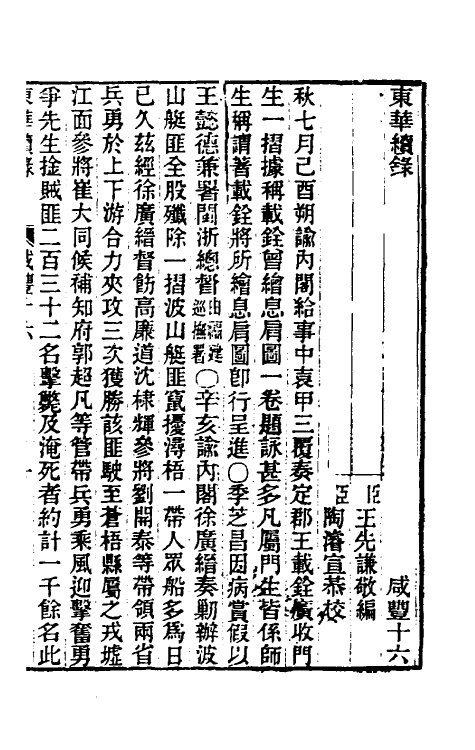 東華續錄
咸豐十六
臣王先謙敬編
臣陶濬宣恭校
秋七月己酉朔諭內閣給事中袁甲三覆奏定郡王載銓廣收門
生一摺據稱載銓曾繪息肩圖一卷題詠甚多凡屬門生皆係師
生稱謂著載銓將所繪息肩圖卽行呈進○季芝昌因病賞假以
王懿德兼署閩浙總督由福建巡撫署○辛亥諭內閣徐廣縉奏勦辦波
山艇匪全股殲除一摺波山艇匪竄擾潯梧一帶人眾船多為日
已久茲經徐廣縉督飭高廉道沈棣輝參將劉開泰等帶領兩省
兵勇於上下游合力夾攻三次獲勝該匪駛至蒼梧縣屬之戎墟
江面參將崔大同候補知府郭超凡等管帶兵勇乘風迎擊奮勇
爭先生擒賊匪二百三十二名擊斃及淹死者約計一千餘名此
東華續錄 咸豐十六 一